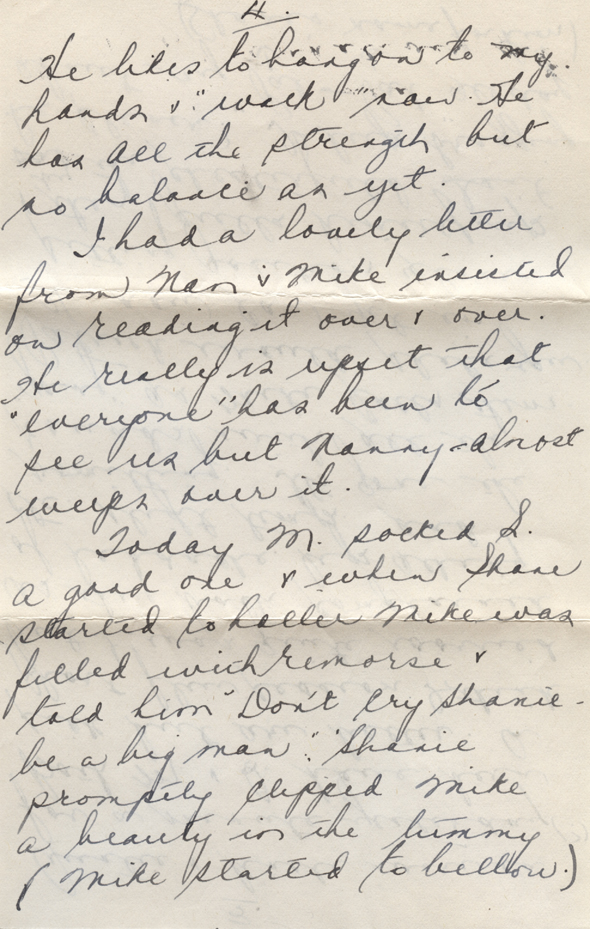 4.
He likes to hang on to my
hands & "walk" now. He
has all the strength but
no balance as yet.
I had a lovely letter
from Nan & Mike insisted
on reading it over & over.
He really is upset that
"everyone" has been to
see us but Nanny - almost
weeps over it.
Today M. socked S.
a good one & when Shane
started to holler Mike was
filled with remorse &
told him "Don't cry Shanie -
be a big man." Shanie
promptly clipped Mike
a beauty in the tummy
(Mike started to bellow.)